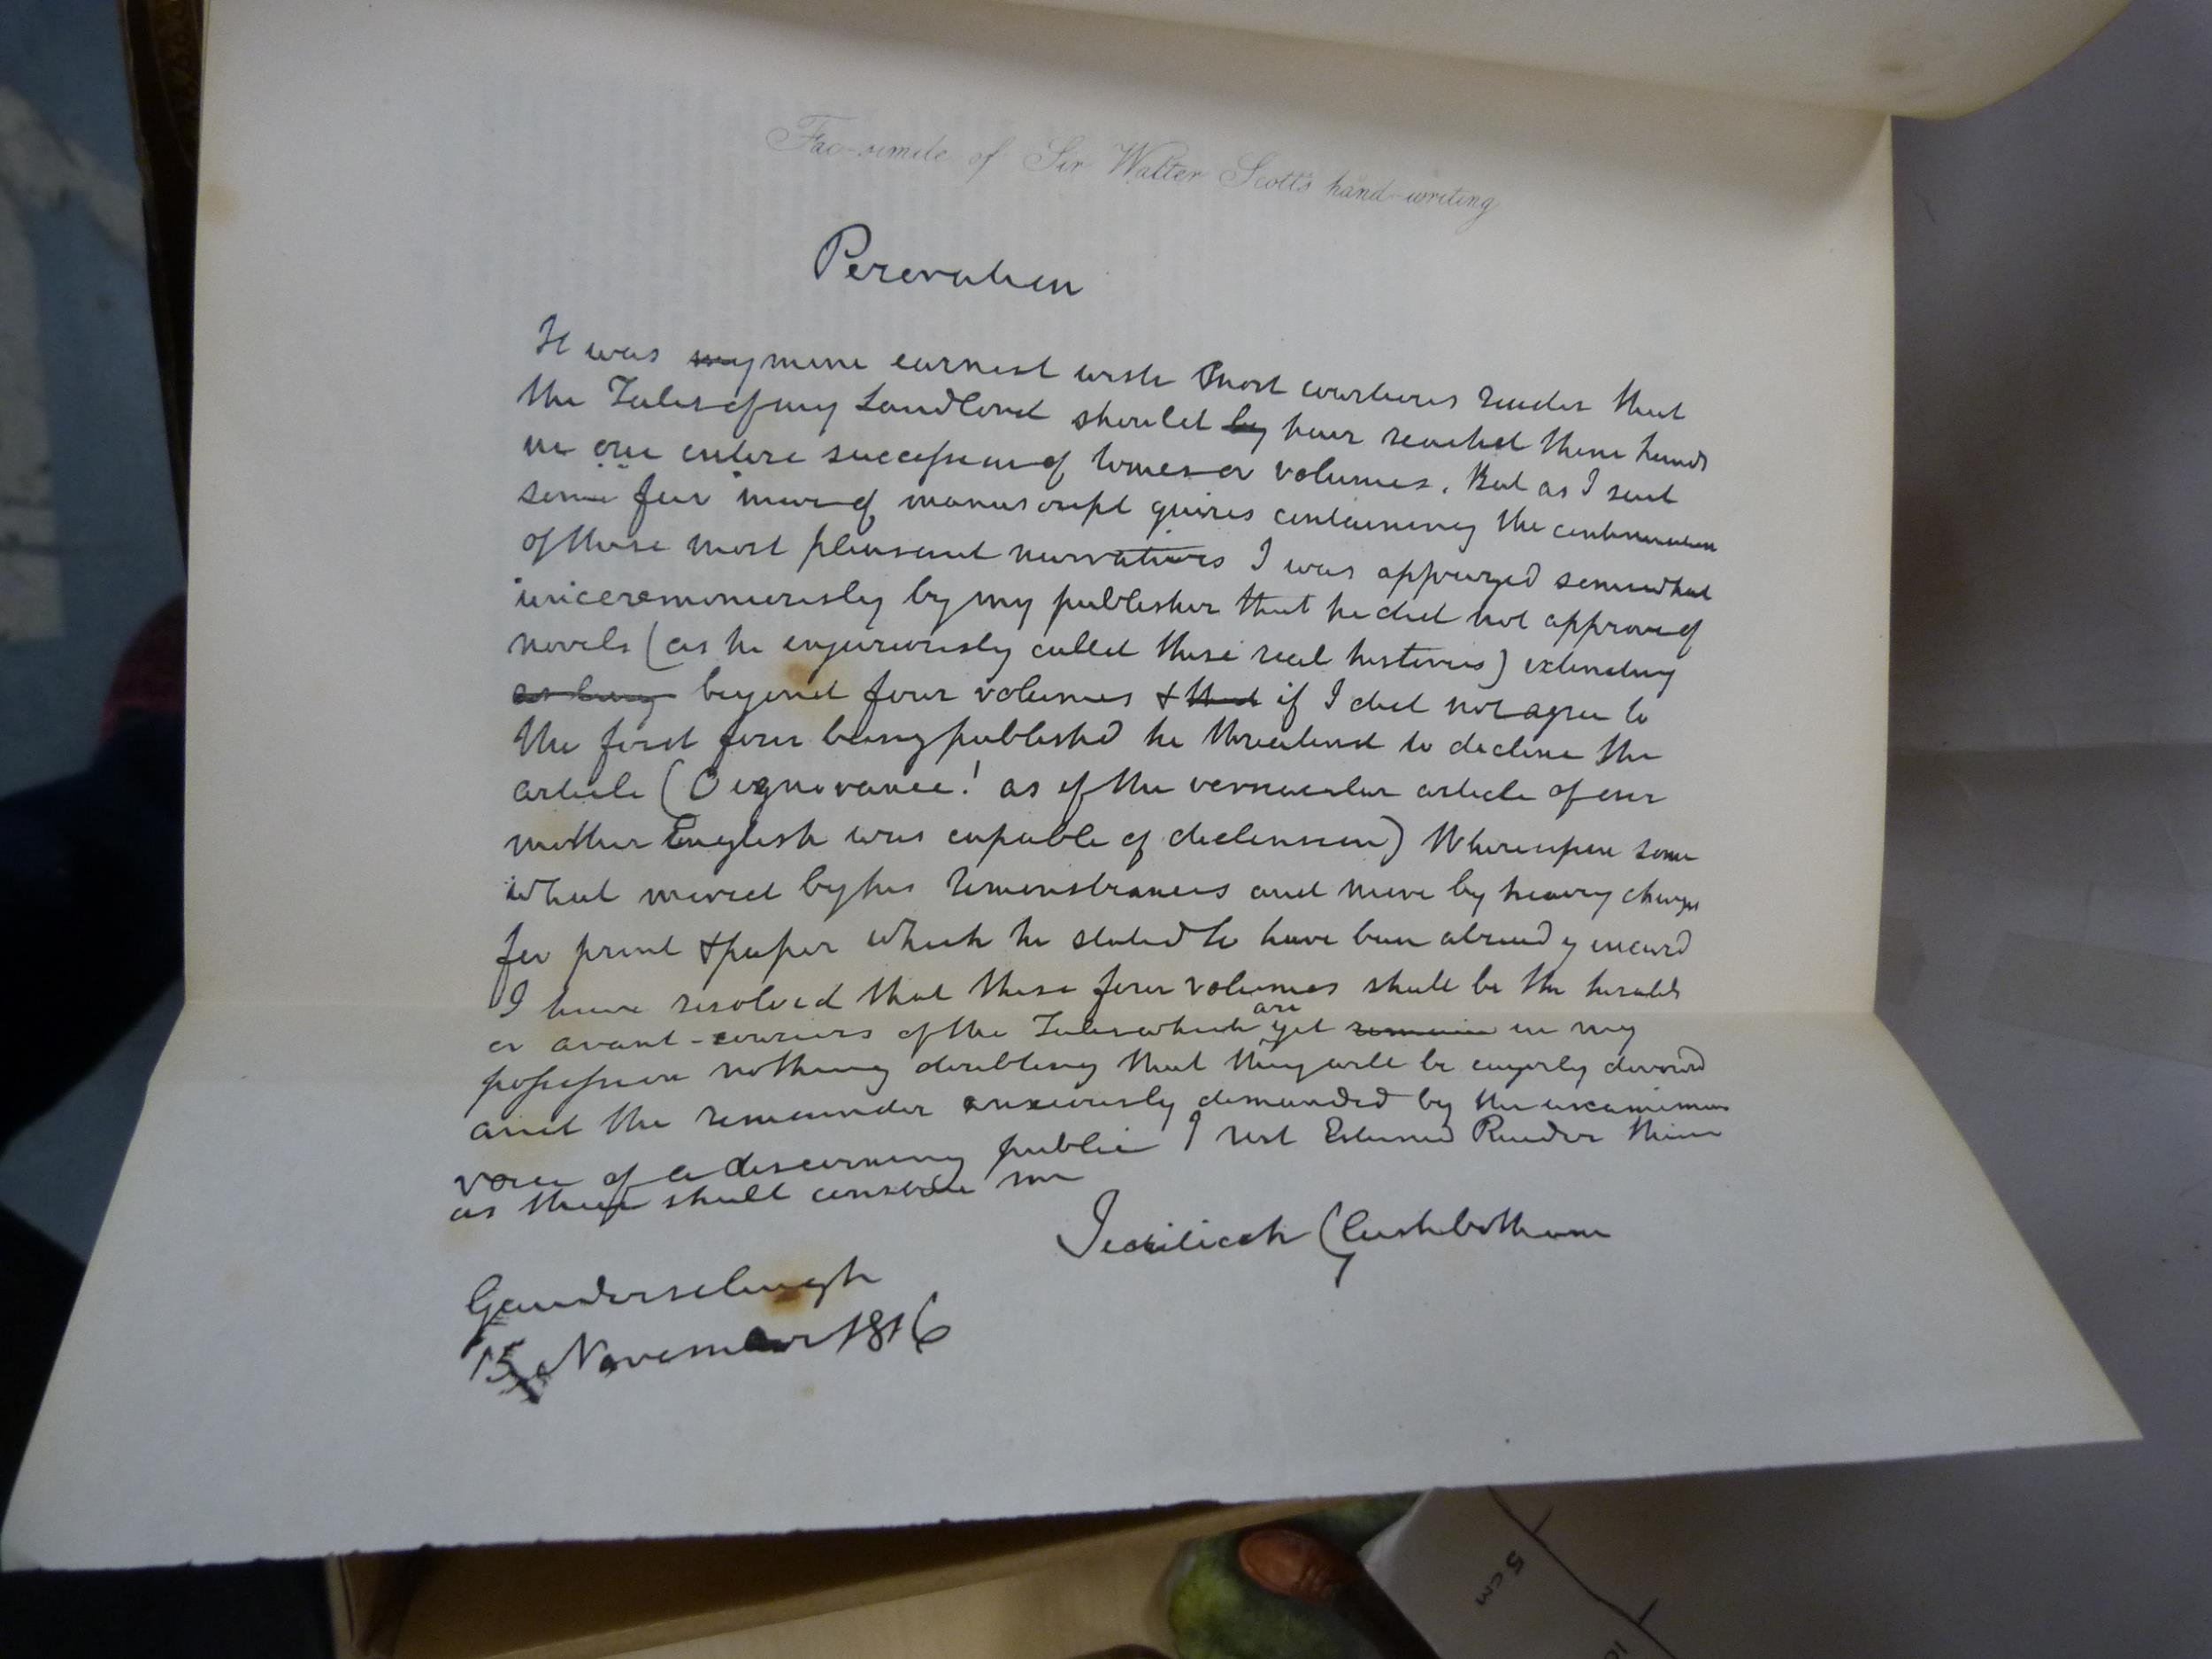 Fac-simile of Sir Walter Scott's hand-writing
Peroration
It was my mine earnest wish most courteous reader that
the Tales of my Landlord should by have reached thine hands
in one entire succession of tomes or volumes. But as I sent
some few more of manuscript quires containing the continuation
of these most pleasant narratives I was apprized somewhat
unceremoniously by my publisher that he did not approve of
novels (as he injuriously called these real histories) extending
as long beyond four volumes & that if I did not agree to
the first four being published he threatend to decline the
article (O ignorance! as if the vernacular article of our
mother English was capable of declension) Whereupon some
what moved by his remonstrances and more by heavy charges
for print & paper which he stated to have been already incurd
I have resolved that these four volumes shall be the heralds
or avant-couriers of the Tales which are yet remain in my
possession nothing doubting that they will be eagerly devourd
and the remainder anxiously demanded by the unanimous
voice of a discerning public I rest Esteemd Reader thine
as thou shalt construe me
Jedidiah Cleishbotham
Gandercleugh
15 November 1816
5 cm
10